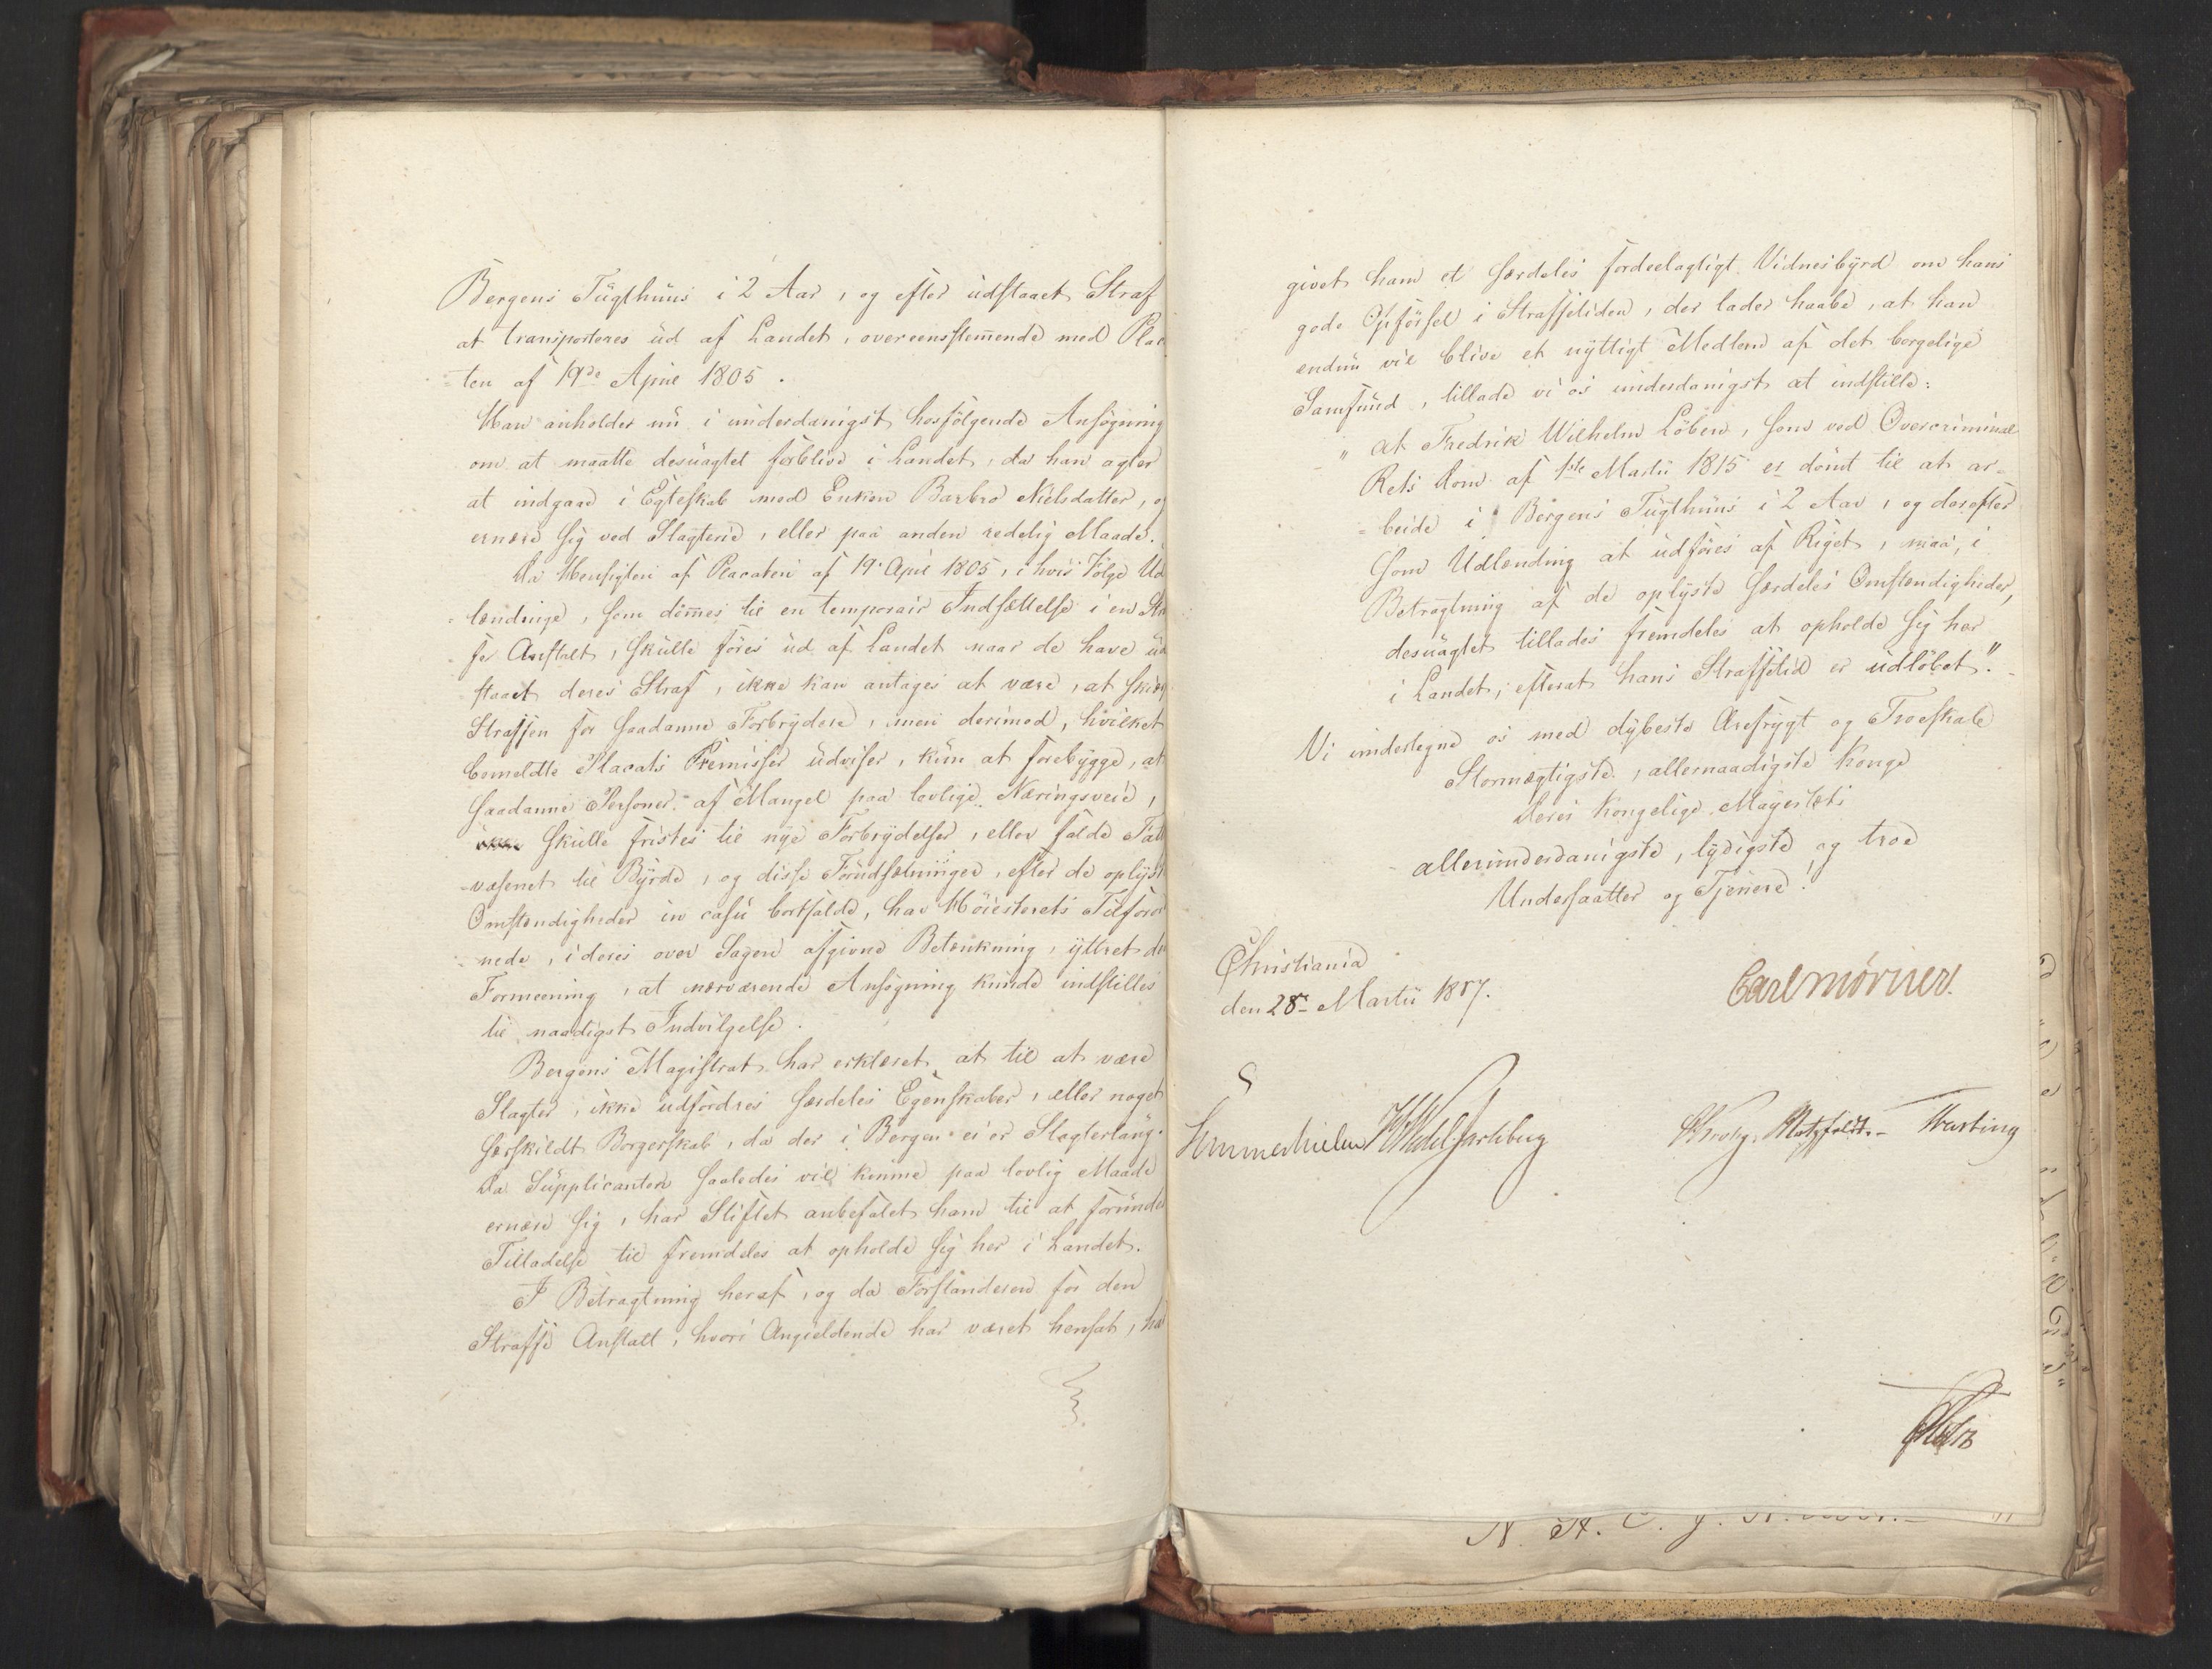 Bergens Tugthuus i 2 Aar, og efter udstaaet Straf
at transporteres ud af Landet, overeensstem̅ende med Plac
=ten af 19de April 1805.
Han anholder nu i underdanigst hosfølgende Ansøgning
om at maatte desuagtet forblive i Landet, da han agter
at indgaae i Egteskab med Enken Barbro Nielsdatter, og
ernære sig ved Slagterie, eller paa anden redelig Maade.
Da Hensigten af Placaten af 19. April 1805, i hvis Følge Ud
=lændinge, som döm̅es til en temporair Indsættelse i en Stra
fe Anstalt, skulle føres ud af Landet naar de have ud
staaet deres Straf, ikke kan antages at være, at skiærp
Straffen for saadanne Forbrydere, men derimod, hvilket
bemeldte Placats Præmisser udviser, kun at forebygge, at
saadanne Personer af Mangel paa lovlige Næringsveie,
skulle fristes til nye Forbrydelser, eller falde Fatt
=væsenet til Byrde, og disse Forudsætninger, efter de oplyst
Omstændigheder in casu bortfalde, har Höiesterets Tilforor
=nede, i deres over Sagen afgivne Betænkning, yttret den
Formeening, at nærværende Ansøgning kunde indstilles
til naadigst Indvilgelse.
Bergens Magistrat har erklæret, at til at være
Slagter, ikke udfordres særdeles Egenskaber, eller noget
særskildt Borgerskab, da der i Bergen ei er Slagterlaug.
Da Supplicanten saaledes vil kunne paa lovlig Maade
ernære sig, har Stiftet anbefalet ham til at forunde
Tilladelse til fremdeles at opholde sig her i Landet.
I Betragtning heraf, og da Forstanderen for den
Straffe Anstalt, hvori Angieldende har været hensat, ha
givet ham et særdeles fordeelagtigt Vidnesbyrd om hans
gode Opförsel i Straffetiden, der lader haabe, at han
endnu vil blive et nyttigt Medlem af det borgelige
Samfund, tillade vi os underdanigst at indstille:
" at Fredrik Wilhelm Löben, som ved Overcriminal
Rets Dom af 1ste Martii 1815 er dömt til at ar=
=beide i Bergens Tugthuus i 2 Aar, og derefter
som Udlænding at udføres af Riget, maa, i
Betragtning af de oplyste særdeles Omstændigheder,
desuagtet tillades fremdeles at opholde sig her
i Landet, efterat hans Straffetid er udløbet".
Vi undertegne os med dybeste Ærefrygt og Troeskab
Stormægtigste, allernaadigste Konge
Deres Kongelige Mayestæts
allerunderdanigste, lydigste og troe
Undersaatter og Tjenere.
Christiania
den 28de Martii 1817.
Carl Mörner.
Sommerhielm HWedel Jarlsberg
CKrohg. Motzfeldt. Hersting